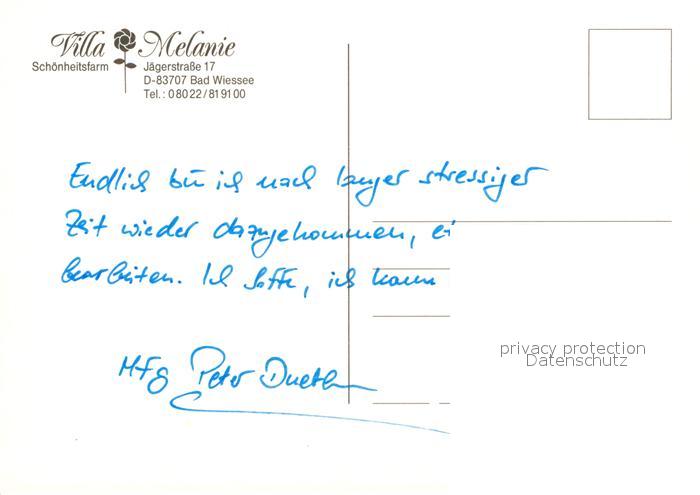 Villa Melanie
Schönheitsfarm
Jägerstraße 17
D-83707 Bad Wiessee
Tel.: 08022/819100
Endlich bin ich nach langer stressiger
Zeit wieder dazugekommen, ei
bearbeiten. Ich hoffe, ich kann
MfG Peter
privacy protection
Datenschutz